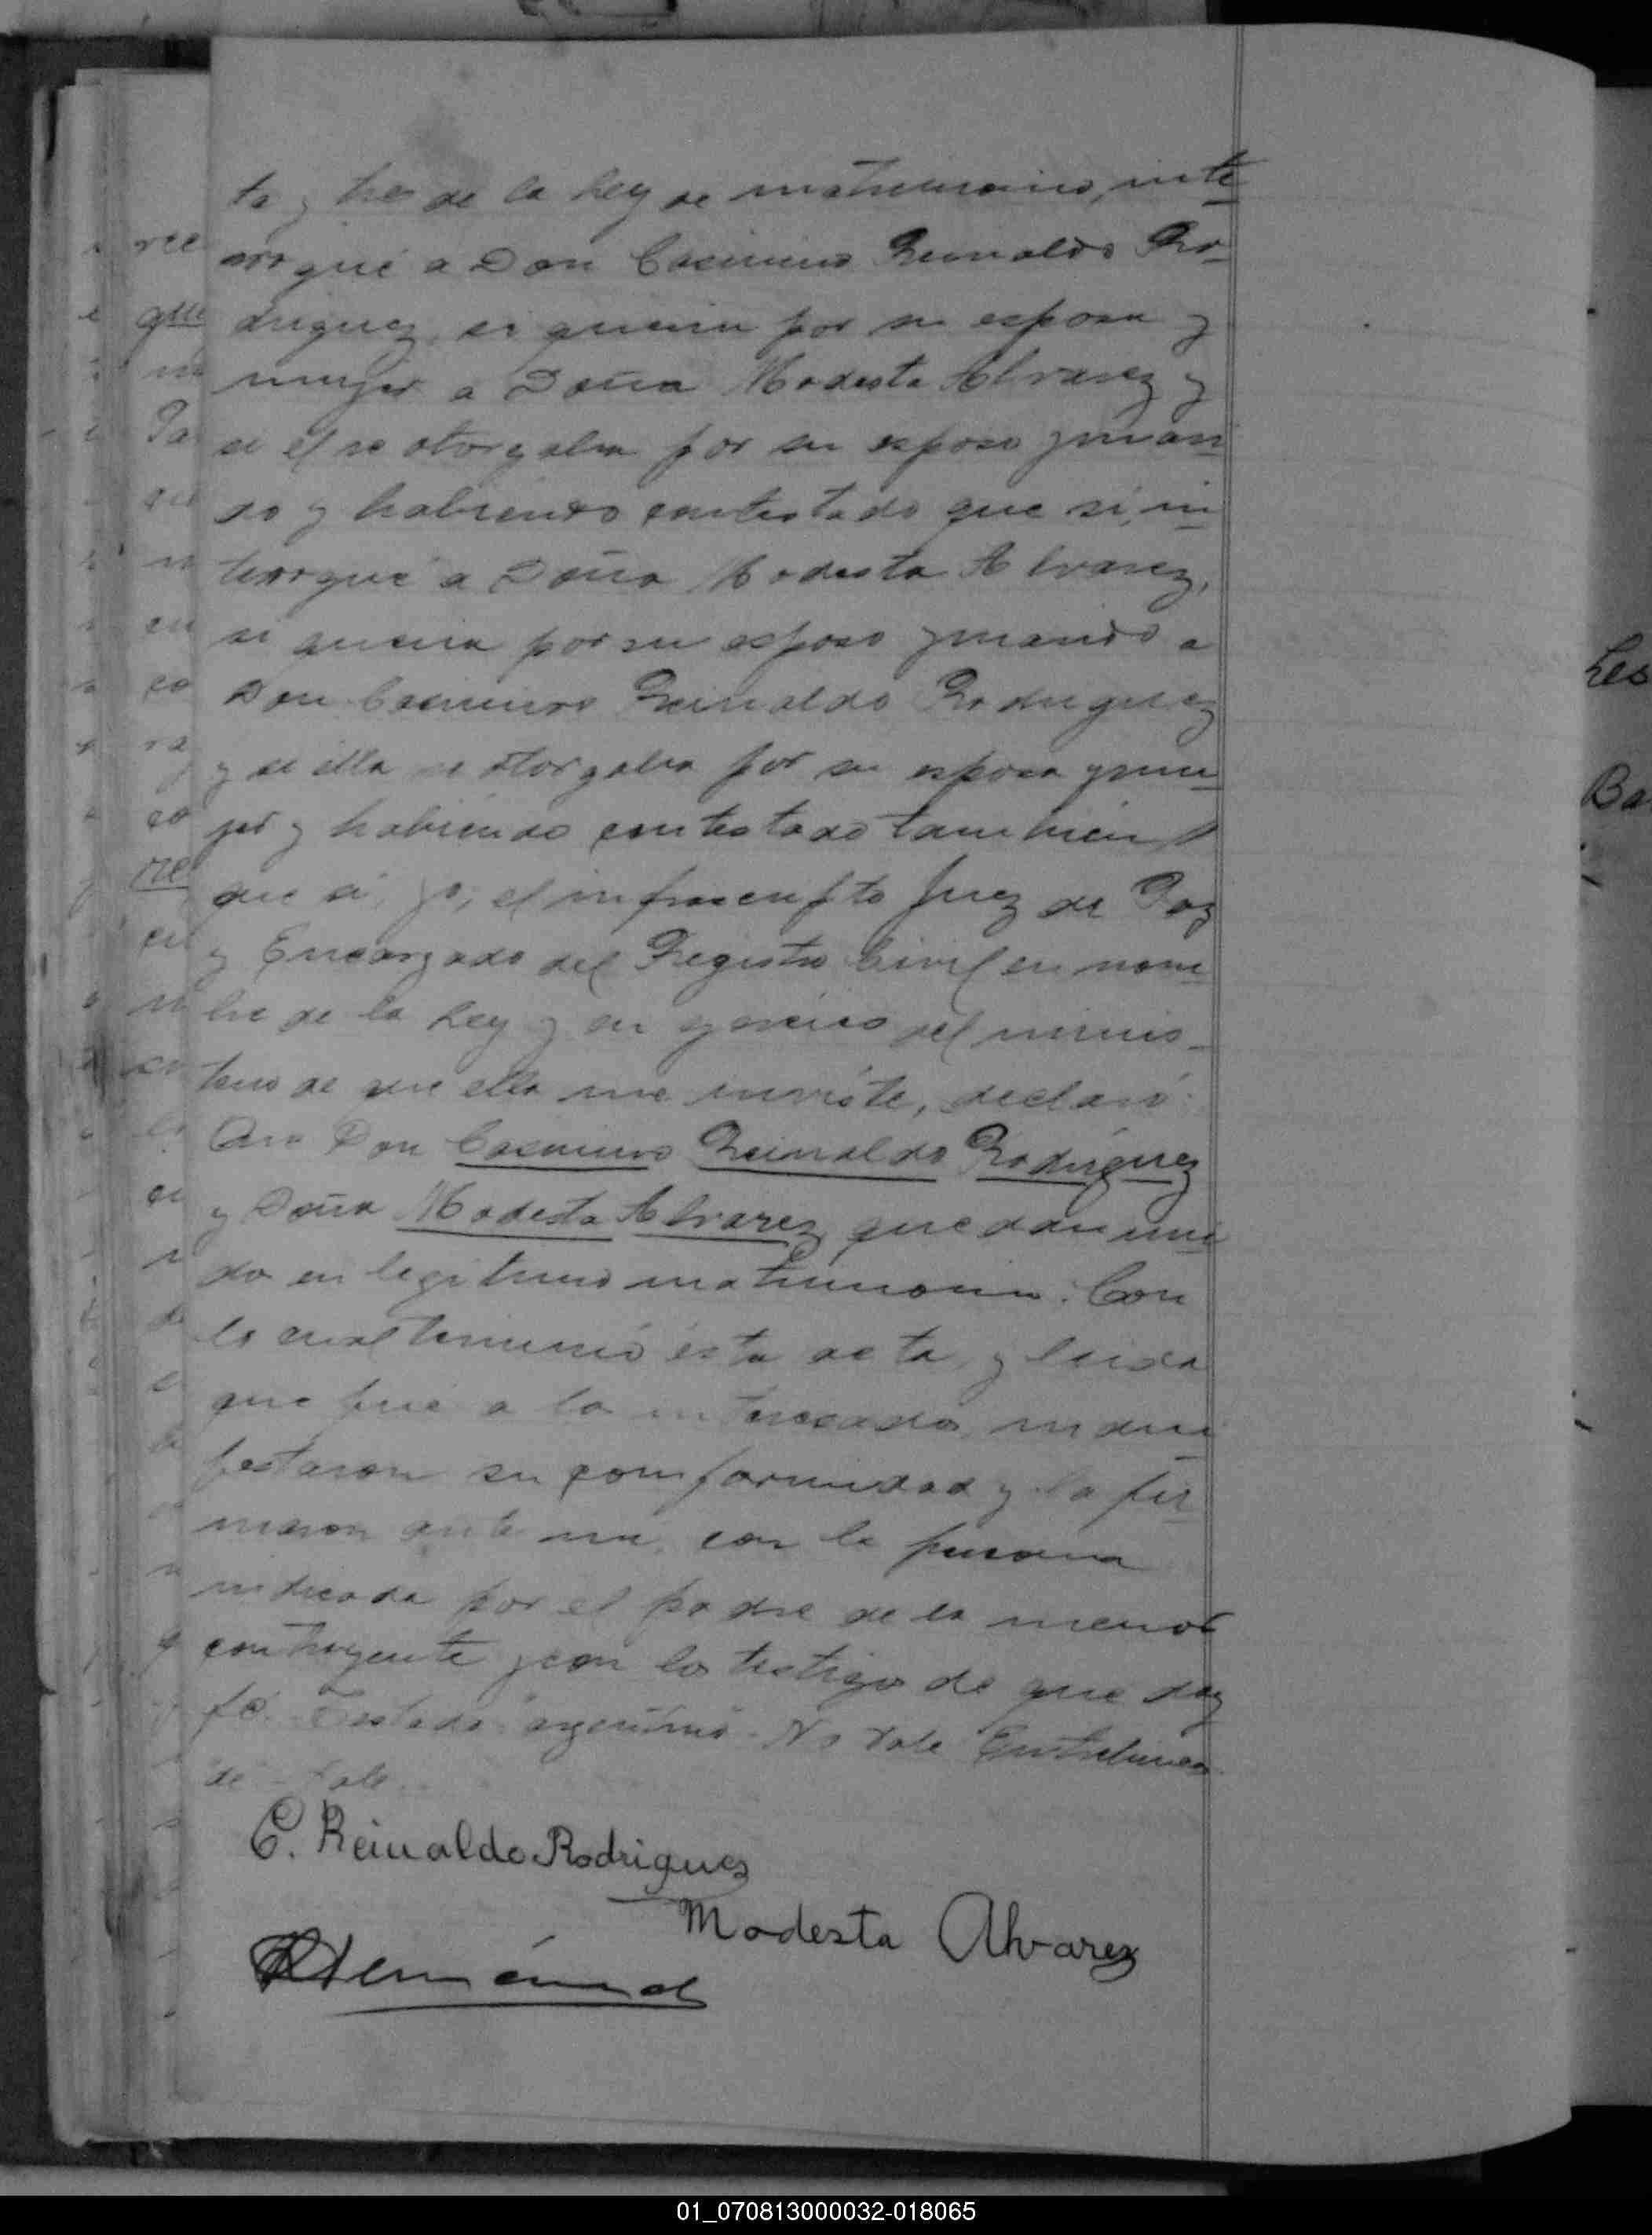 ta y tres de la Ley de matrimonio, inte
rrogué a Don Casimiro Reinaldo Ro-
driguez, si queria por su esposa y
mujer a Doña Modesta Alvarez y
si él se otorgaba por su esposo y mari
do y habiendo contestado que si, in
terrogué a Doña Modesta Alvarez,
si queria por su esposo y marido a
Don Casimiro Reinaldo Rodriguez
y si ella se otorgaba por su esposa y mu
jer y habiendo contestado tambien
que si, yo, el infrascripto Juez de Paz
y Encargado del Registro Civil en nom
bre de la Ley y en ejercicio del minis-
terio de que ella me inviste, declaro:
Que Don Casimiro Reinaldo Rodriguez
y Doña Modesta Alvarez quedan uni
dos en legitimo matrimonio. Con
lo cual terminó ésta acta, y leida
que fué a los interesados, mani
festaron su comformidad y la fir
maron ante mi, con la persona
indicada por el padre de la menor
contrayente y con los testigos de que doy
fé. Testado: argentino. No Vale Entrelineas
de - Vale.
C. Reinaldo Rodriguez
Modesta Alvarez
Les
Ba
01_070813000032-018065